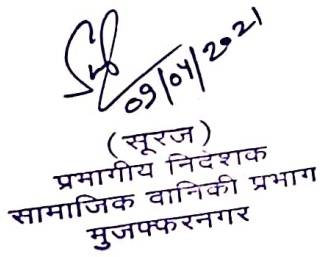 09/04/2021
(सूरज)
प्रभागीय निदेशक
सामाजिक वानिकी प्रभाग
मुजफ्फरनगर